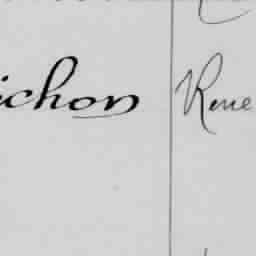 ichon Rene